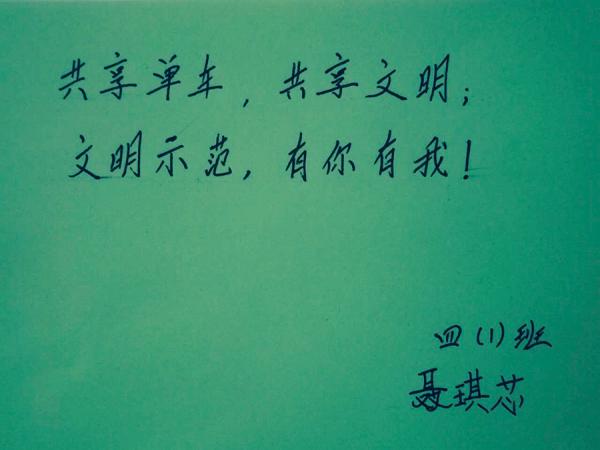 共享单车，共享文明；
文明示范，有你有我！
四（1）班
聂琪芯